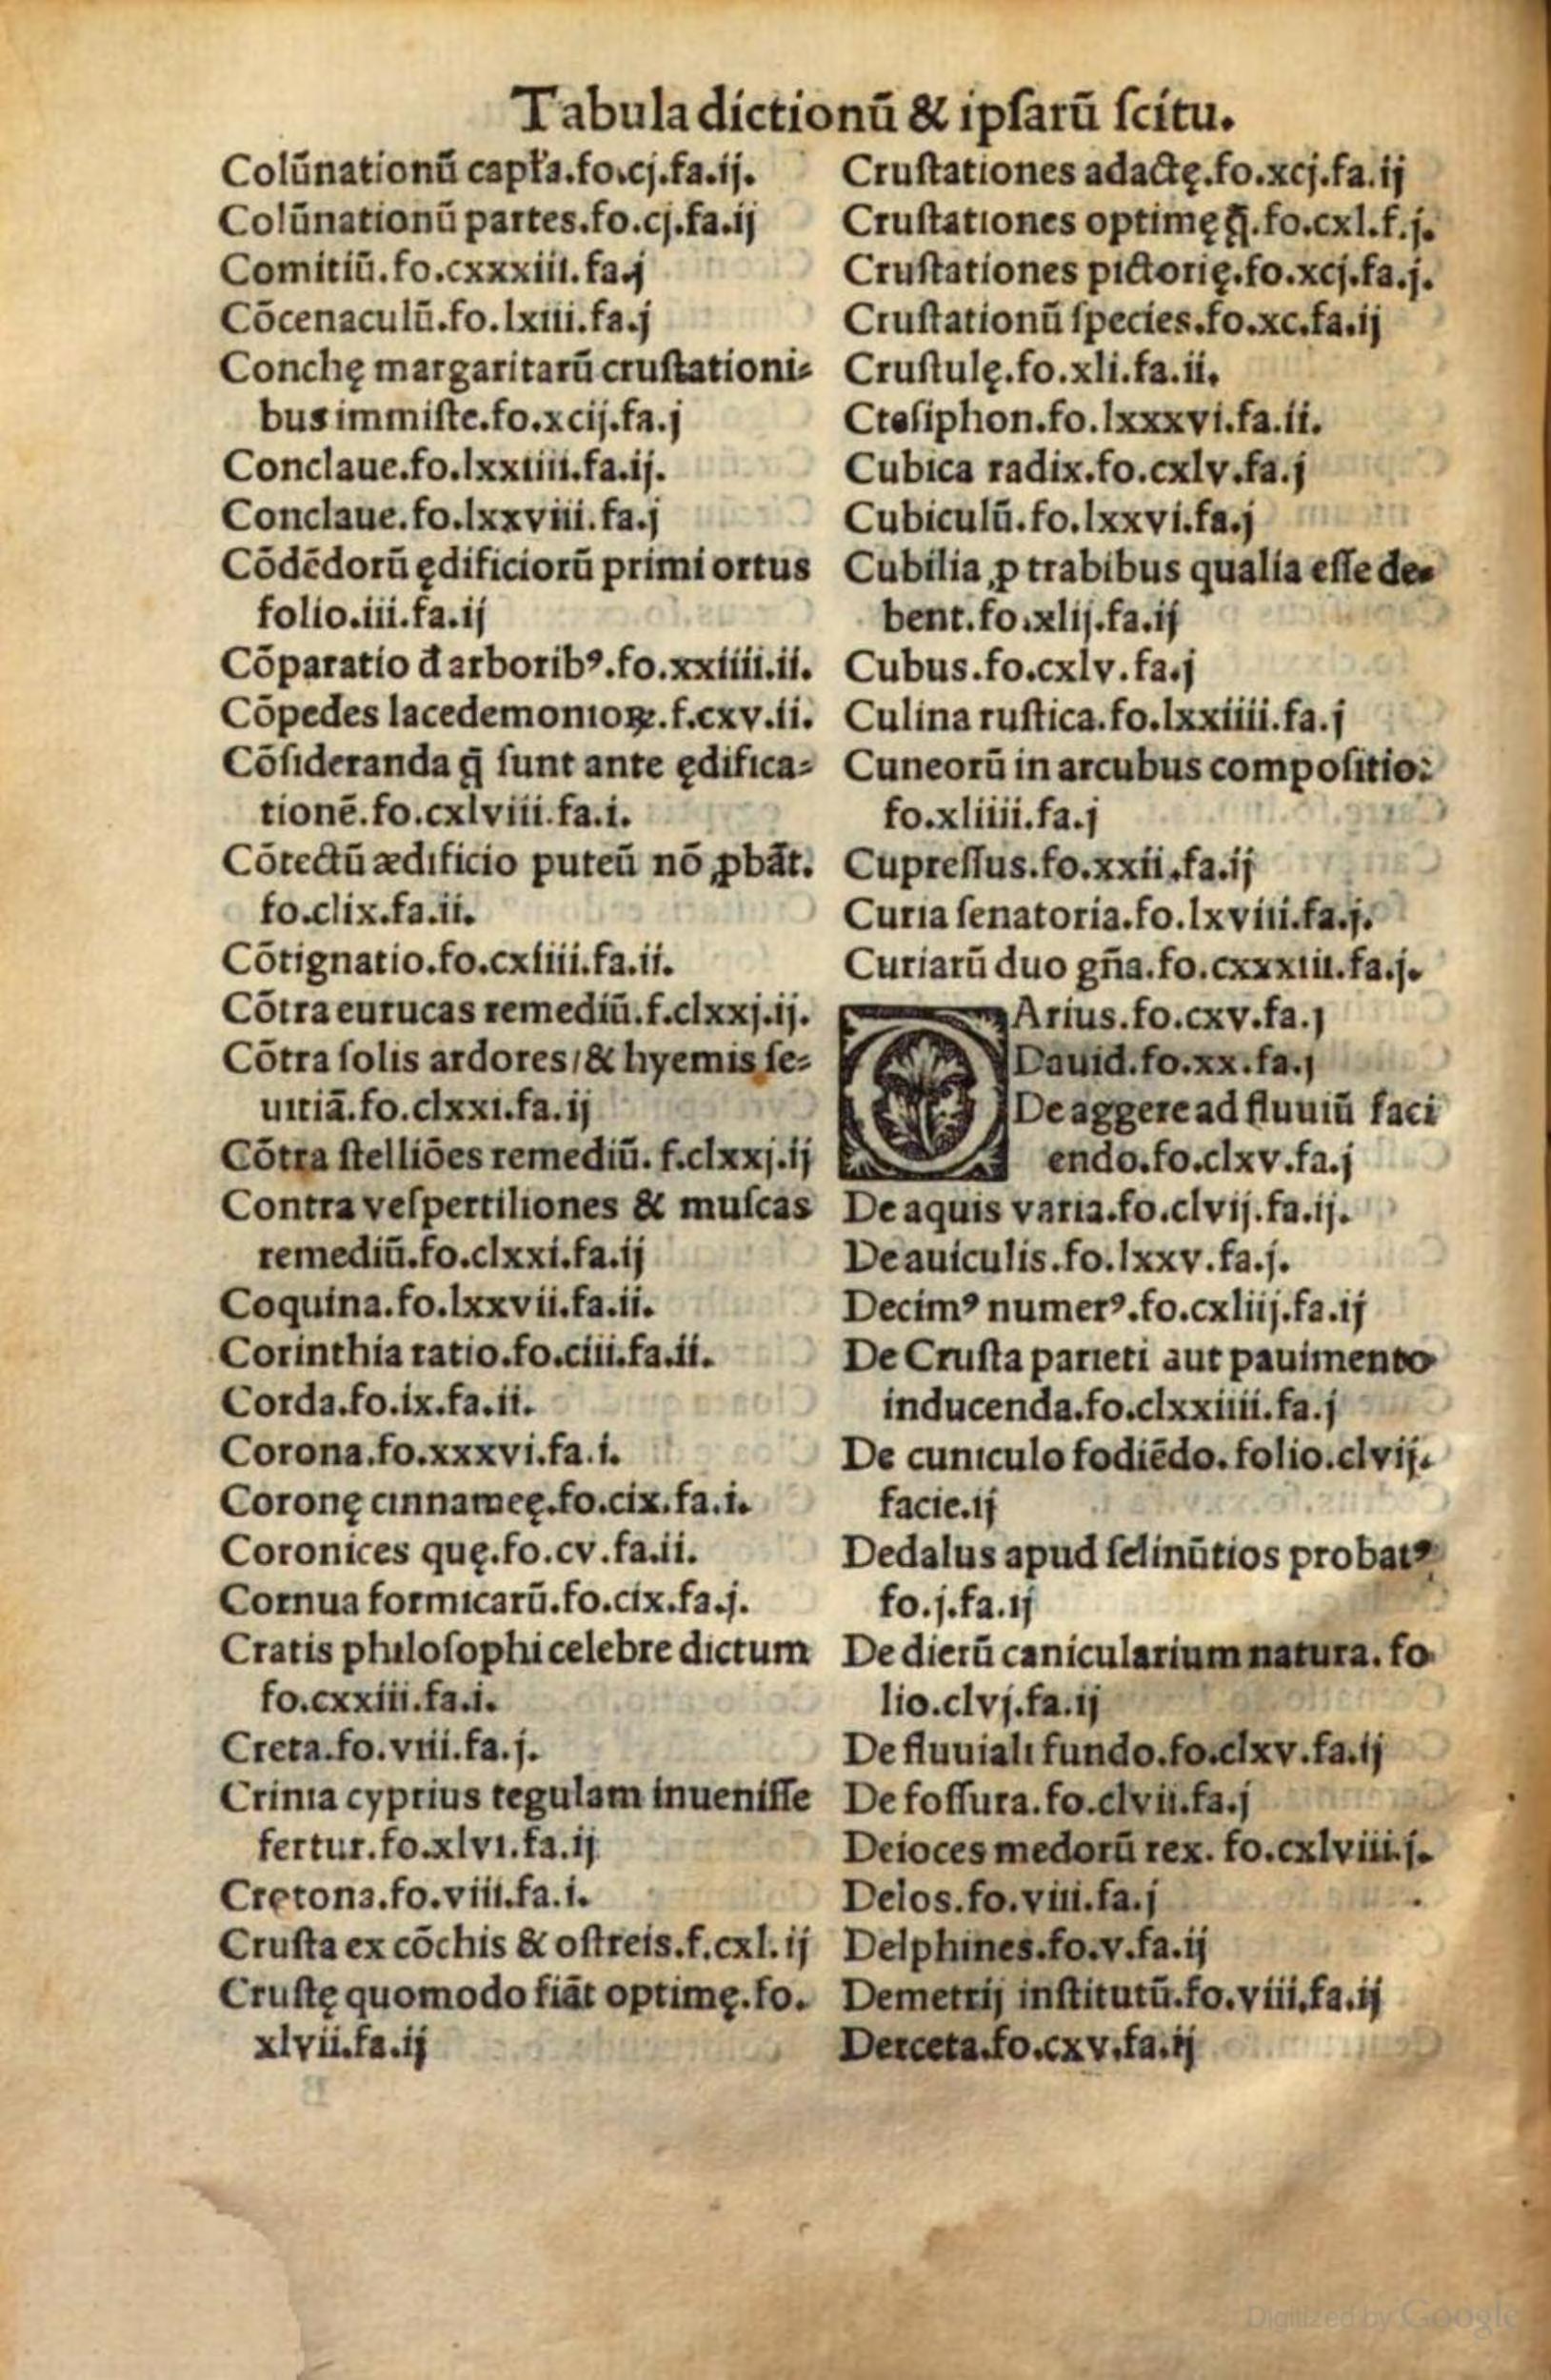 Tabula dictionū & ipſarū ſcitu.
Colūnationū capła.fo.cj.fa.ij.
Colūnationū partes.fo.cj.fa.ij
Comitiū.fo.cxxxiii.fa.j
Cōcenaculū.fo.lxiii.fa.j
Conchę margaritarū cruſtationi⸗
bus immiſte.fo.xcij.fa.j
Conclaue.fo.lxxiiii.fa.ij.
Conclaue.fo.lxxviii.fa.j
Cōdēdorū ędificiorū primi ortus
folio.iii.fa.ij
Cōparatio đ arboribꝰ.fo.xxiiii.ii.
Cōpedes lacedemonioꝝ.f.cxv.ii.
Cōſideranda q̄ ſunt ante ędifica⸗
tionē.fo.cxlviii.fa.i.
Cōtectū ædificio puteū nō ꝓbāt.
fo.clix.fa.ii.
Cōtignatio.fo.cxliii.fa.ii.
Cōtra eurucas remediū.f.clxxj.ij.
Cōtra ſolis ardores/& hyemis ſe⸗
uitiā.fo.clxxi.fa.ij
Cōtra ſtelliōes remediū.f.clxxj.ij
Contra veſpertiliones & muſcas
remediū.fo.clxxi.fa.ij
Coquina.fo.lxxvii.fa.ii.
Corinthia ratio.fo.ciii.fa.ii.
Corda.fo.ix.fa.ii.
Corona.fo.xxxvi.fa.i.
Coronę cinnameę.fo.cix.fa.i.
Coronices quę.fo.cv.fa.ii.
Cornua formicarū.fo.cix.fa.j.
Cratis philoſophi celebre dictum
fo.cxxiii.fa.i.
Creta.fo.viii.fa.j.
Crinia cyprius tegulam inueniſſe
fertur.fo.xlvi.fa.ij
Cretona.fo.viii.fa.i.
Cruſta ex cōchis & oſtreis.f.cxl.ij
Cruſtę quomodo fiāt optimę.fo.
xlvii.fa.ij
Cruſtationes adactę.fo.xcj.fa.ij
Cruſtationes optimę q̄.fo.cxl.f.j.
Cruſtationes pictorię.fo.xcj.fa.j.
Cruſtationū ſpecies.fo.xc.fa.ij
Cruſtulę.fo.xli.fa.ii.
Cteſiphon.fo.lxxxvi.fa.ii.
Cubica radix.fo.cxlv.fa.j
Cubiculū.fo.lxxvi.fa.j
Cubilia ꝓ trabibus qualia eſſe de⸗
bent.fo.xlij.fa.ij
Cubus.fo.cxlv.fa.j
Culina ruſtica.fo.lxxiiii.fa.j
Cuneorū in arcubus compoſitio:
fo.xliiii.fa.j
Cupreſſus.fo.xxii.fa.ij
Curia ſenatoria.fo.lxviii.fa.j.
Curiarū duo gn̄a.fo.cxxxiii.fa.j.
DArius.fo.cxv.fa.j
Dauid.fo.xx.fa.j
De aggere ad fluuiū faci
endo.fo.clxv.fa.j
De aquis varia.fo.clvij.fa.ij.
De auiculis.fo.lxxv.fa.j.
Decimꝰ numerꝰ.fo.cxliij.fa.ij
De Cruſta parieti aut pauimento
inducenda.fo.clxxiiii.fa.j
De cuniculo fodiēdo.folio.clvij.
facie.ij
Dedalus apud ſelinūtios probatꝰ
fo.j.fa.ij
De dierū canicularium natura.fo
lio.clvj.fa.ij
De fluuiali fundo.fo.clxv.fa.ij
De foſſura.fo.clvii.fa.j
Deioces medorū rex.fo.cxlviii.j.
Delos.fo.viii.fa.j
Delphines.fo.v.fa.ij
Demetrij inſtitutū.fo.viii.fa.ij
Derceta.fo.cxv.fa.ij
Digitized by Google